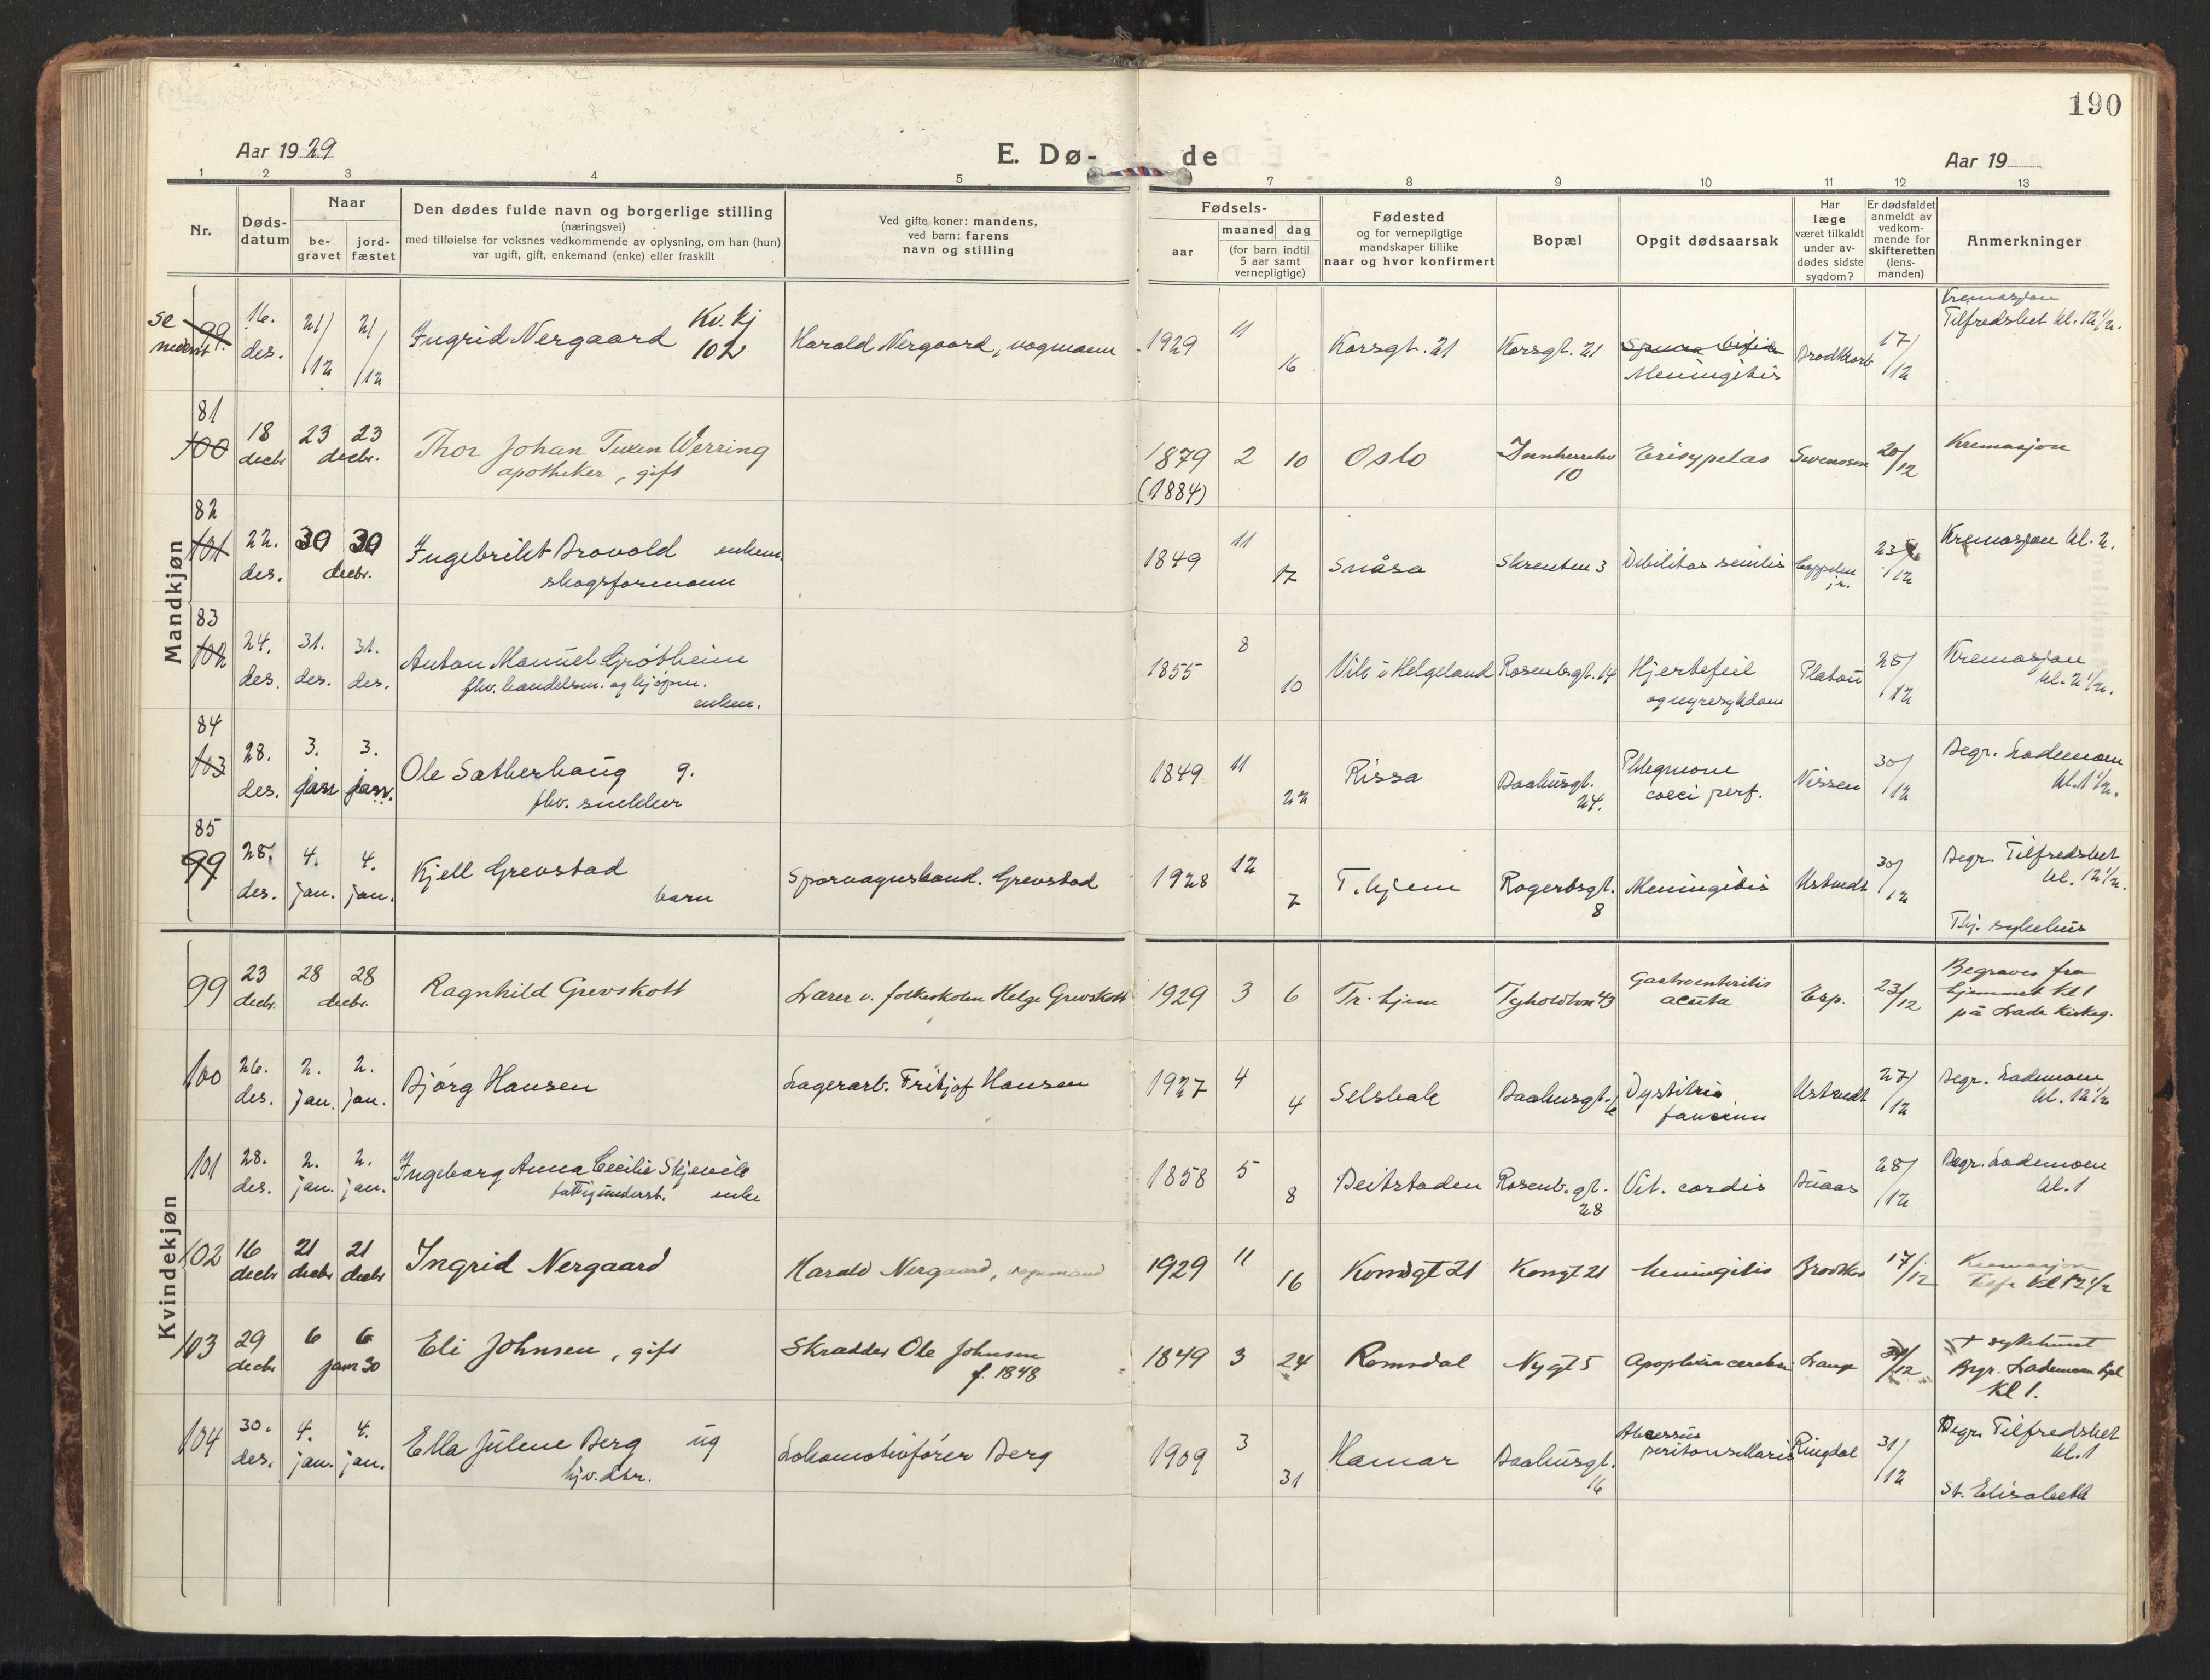 190
Aar 1929
E. Dø-
de
Aar 19
1 2 3 4 5 7 8 9 10 11 12 13
Nr.
Døds-
datum
Naar
be-
gravet
jord-
fæstet
Den dødes fulde navn og borgerlige stilling
(næringsvei)
med tilføielse for voksnes vedkommende av oplysning, om han (hun)
var ugift, gift, enkemand (enke) eller fraskilt
Ved gifte koner: mandens,
ved barn: farens
navn og stilling
Fødsels-
aar
maaned dag
(for barn indtil
5 aar samt
vernepligtige)
Fødested
og for vernepligtige
mandskaper tillike
naar og hvor konfirmert
Bopæl
Opgit dødsaarsak
Har
læge
været tilkaldt
under av-
dødes sidste
sygdom?
Er dødsfaldet
anmeldt av
vedkom-
mende for
skifteretten
(lens-
manden)
Anmerkninger
Mandkjøn
se nederst 99. 16. des. 21/12 21/12 Ingrid Nergaard Kv. kj 102 Harald Nergaard, vognmann 1929 11 16 Korsgt. 21 Korsgt. 21 Spina bifida Meningitis Brodtkorb 17/12 Kremasjon Tilfredshet kl. 12½.
81 100 18 decbr 23 23 decbr. Thor Johan Tuxen Werring
apotheker, gift
1879 (1884) 2 10 Oslo Innherredsv 10 Erisypelas Swensson 20/12 Kremasjon
82 101 22. des. 30 30 decbr. Ingebrikt Brovold enkem.
skogsformann
1849 11 17 Snåsa Skrenten 3 Dibilitas senilis Coppelen jr. 23/12 Kremasjon kl. 2.
83 102 24. des. 31. des. 31. des. Anton Manuel Grötheim
fhv. handelsm. og kjøpm.
enkem.
1855 8 10 Vik i Helgeland Rosenbgt. 14 Hjertefeil og nyresykdom Platou 28/12 Kremasjon kl. 2½.
84 103 28. des. 3. janr 3. janr. Ole Sætherhaug g.
fhv. snekker
1849 11 22 Rissa Baahusgt. 24. Phlegmone coeci perf. Nissen 30/12 Begr. Lademoen kl. 1½.
85 99 28. des. 4. jan. 4. jan. Kjell Grevstad
barn
Sporvagnskond. Grevstad 1928 12 7 T.hjem Rogertsgt. 8 Meningitis Ustvedt 30/12 Begr. Tilfredshet kl. 12½.
Thj. sykehus
Kvindekjøn
99 23 decbr. 28 28 decbr. Ragnhild Grevskott Lærer v. folkeskolen Helge Grevskott 1929 3 6 Tr.hjem Tyholtvn 43 Gastroenteritis acuta Esp. 23/12 Begraves fra
hjemmet kl 1
på Lade kirkeg.
100 26. des. 2. jan. 2. jan. Bjørg Hansen Lagerarb. Fritjof Hansen 1927 4 4 Selsbak Baahusgt. Ustvedt 27/12 Begr. Lademoen kl. 12½
101 28. des. 2. jan. 2. jan. Ingeborg Anna Cecilie Skjevik
fattigunderst. enke
1858 5 8 Beitstaden Rosenb. gt. 28 Vit. cordis Buaas 28/12 Begr. Lademoen kl. 1
102 16 decbr 21 decbr 21 decbr Ingrid Nergaard Harald Nergaard, vognmand 1929 11 16 Korsgt 21 Korsgt 21 Meningitis Brodtkor 17/12 Kremasjon
Tilfr kl 12½
103 29 decbr 6 6 janr 30 Eli Johnsen, gift Skrædder Ole Johnsen
f. 1848
1849 3 24 Romsdal Nygt 5 Apoplexia cerebri Lange 31/12 + sykehuset
Begr. Lademoen kpl
kl 1.
104 30. des. 4. jan. 4. jan. Ella Julene Berg ug
hjv. dtr.
Lokomotivfører Berg 1909 3 31 Hamar Baahusgt. 16 Abcessus peritonsillaris Ringdal 31/12 Begr. Tilfredshet
kl. 1
St. Elisabeth